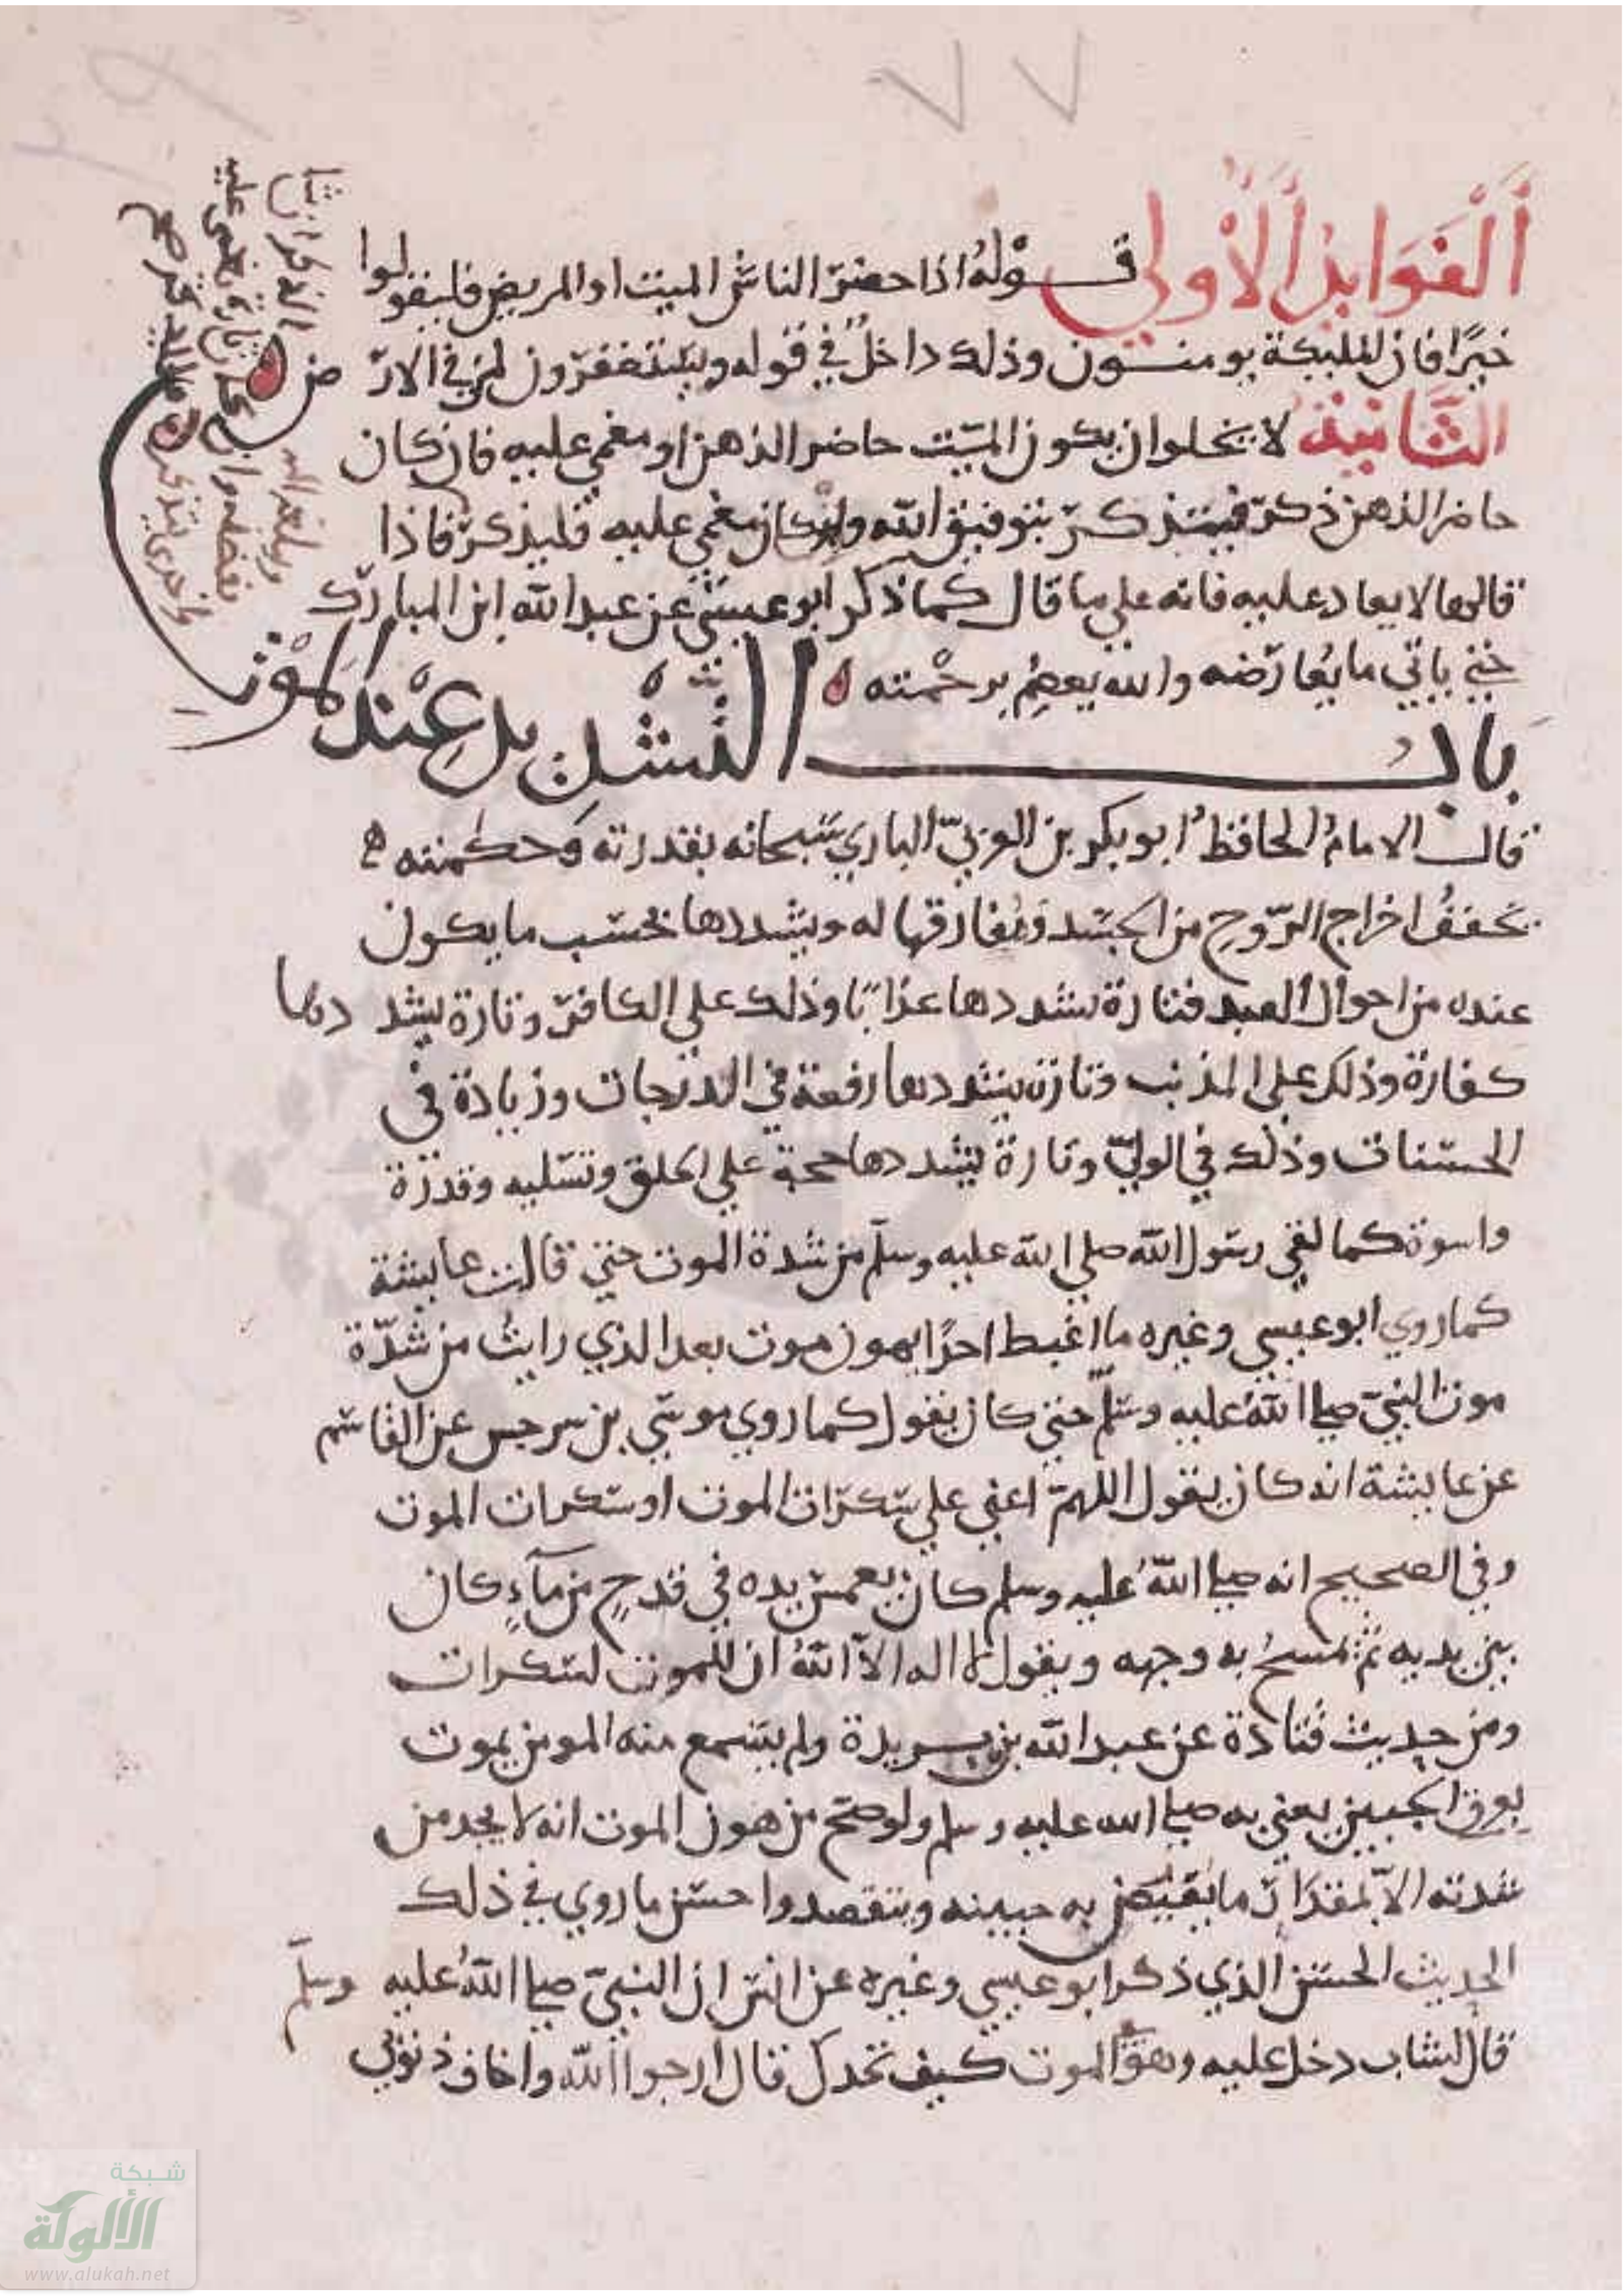 الفوايد الأولي قوله اذا حضر الناس الميت او المريض فليقولوا
خيرًا فان الملبكة يومنون وذلك داخل في قوله ويستغفرون لمن في الارض
الثانية لا يخلوا ان يكون الميت حاضر الذهن او مغمي عليه فان كان
حاضر الذهن ذكر فيتذكر بتوفيق الله وان كان مغمي عليه فليذكر فاذا
قالها لا يعاد عليه فانه علي ما قال كما ذكر ابو عيسى عن عبد الله ابن المبارك
حتي ياتي ما يعارضه والله يعصم برحمته
باب التشديد عند الموت
قال الامام الحافظ ابو بكر بن العربي الباري سبحانه بقدرته وحكمته
يخفف اخراج الروح من الجسد ومفارقتها له ويشددها بحسب ما يكون
عنده من احوال العبد فتارة يشددها عذابا وذلك علي الكافر وتارة يشددها
كفارة وذلك علي المذنب وتارة يشددها رفعة في الدرجات وزيادة في
الحسنات وذلك في الولي وتارة يشددها حجة علي الخلق وتسليه وقدرة
واسوة كما لقي رسول الله صلي الله عليه وسلم من شدة الموت حتي قالت عايشة
كما روي ابو عيسي وغيره ما اغبط احدًا بهون موت بعد الذي رايت من شدة
موت النبي صلي الله عليه وسلم حتي كان يقول كما روي موسي بن سرجس عن القاسم
عن عايشة انه كان يقول اللهم اعني علي سكرات الموت او سكرات الموت
وفي الصحيح انه صلي الله عليه وسلم كان يغمس يده في قدح من مآء كان
بين يديه ثم يمسح به وجهه ويقول لا اله الا الله ان للموت لسكرات
ومن حديث قتادة عن عبد الله بن بريدة ولم يسمع منه المومن يموت
بعرق الجبين يعني به صلي الله عليه وسلم ولو صح من هون الموت انه لا يجد من
شدته الا بمقدار ما يفيض به جبينه ويتفصد واحسن ما روي في ذلك
الحديث الحسن الذي ذكر ابو عيسي وغيره عن انس ان النبي صلي الله عليه وسلم
قال لشاب دخل عليه وهو الموت كيف تجدك قال ارجوا الله واخاف ذنوبي
شبكة
الألوكة
www.alukah.net